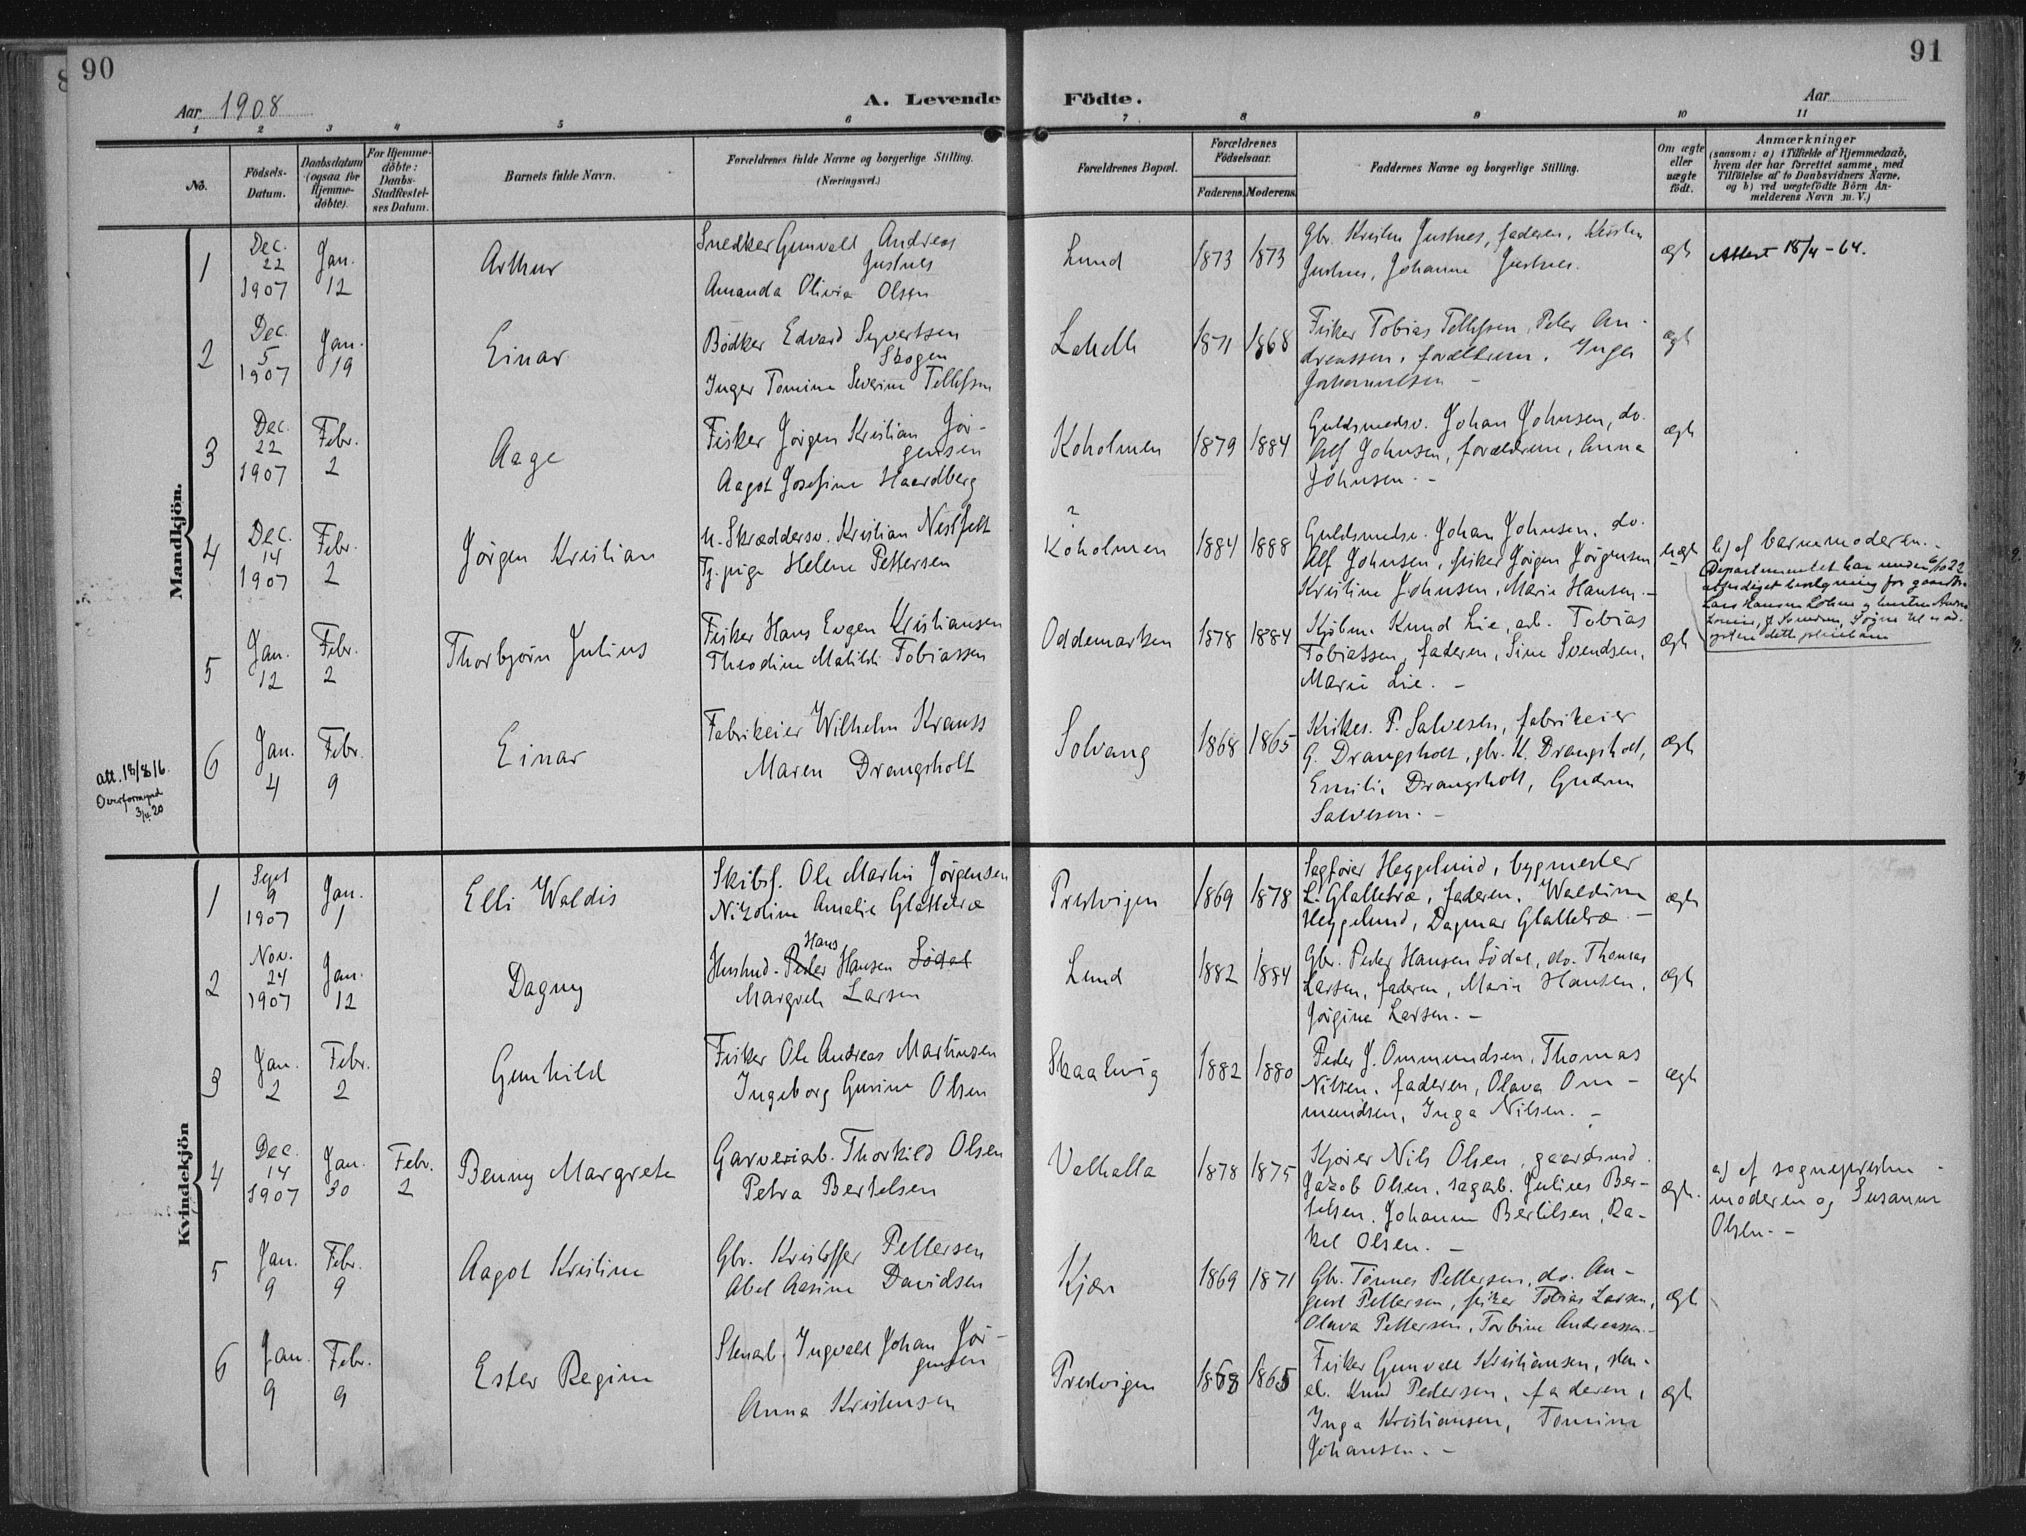 90
91
Aar 1908
A. Levende
Födte.
Aar
1 2 3 4 5 6 7 8 9 10 11
No.
Födsels-
Datum.
Daabsdatum
(ogsaa for
Hjemme-
döbte).
For Hjemme-
döbte:
Daabs-
Stadfæstel-
ses Datum.
Barnets fulde Navn.
Forældrenes fulde Navne og borgerlige Stilling.
(Næringsvei.)
Forældrenes Bopæl.
Forældrenes
Födselsaar.
Faderens. Moderens.
Faddernes Navne og borgerlige Stilling.
Om ægte
eller
uægte
födt.
Anmærkninger
(saasom: a) i Tilfælde af Hjemmedaab,
hvem der har forrettet samme, med
Tilföielse af to Daabsvidners Navne,
og b) ved uægtefödte Börn An-
melderens Navn m. V.)
Mandkjön.
1
Dec.
22
1907
Jan.
12
Arthur
Snedker Gunvald Andreas
Justnes
Amanda Olivia Olsen
Lund
1873 1873
Gbr. Kristen Justnes, faderen, Kirsten
Justnes, Johanne Justnes.
ægte
Attest 18/4 - 64.
2
Dec.
5
1907
Jan.
19
Einar
Bødker Edvard Syvertsen
Skogen
Inger Tomine Severine Tellefsen
Lahelle
1871 1868
Fisker Tobias Tellefsen, Peter An-
dreassen, forældrene, Inga
Johannesen -
ægte
3
Dec.
22
1907
Febr.
2
Aage
Fisker Jørgen Kristian Jør-
gensen
Aagot Josefine Haardberg
Koholmen
1879 1884
Guldsmedsv. Johan Johnsen, do.
Alf Johnsen, forældrene, Anna
Johnsen. -
ægte
4
Dec.
14
1907
Febr.
2
Jørgen Kristian
U. Skræddersv. Kristian Nesfelt
Tj. pige Helene Pettersen
?
Koholmen
1884 1888
Guldsmedsv. Johan Johnsen, do.
Alf Johnsen, fisker Jørgen Jörgensen
Kristine Johnsen, Marie Hansen. -
uægte
b) af barnemoderen. -
Departementet har under 6/10 22
utferdiget bevilgning for gaardbr.
Lars Hansen
Søgne til at ad-
optere dette pleiebarn
5
Jan.
12
Febr.
2
Thorbjørn Julius
Fisker Hans Eugen Kristiansen
Theodine Matilde Tobiassen
Oddemarken
1878 1884
Kjøbm. Knud Lie, arb. Tobias
Tobiassen, faderen, Sine Svendsen,
Marie Lie. -
ægte
att. 18/8 16.
Overformynd
3/4 20
6
Jan.
4
Febr.
9
Einar
Fabrikeier Wilhelm Krauss
Maren Drangsholt
Solvang
1868 1865
Kirkes. P. Salvesen, fabrikeier
G. Drangsholt, gbr. K. Drangsholt,
Emilie Drangsholt, Gudrun
Salvesen. -
ægte
Kvindekjön
1
Sept
9
1907
Jan.
1
Elli Waldis
Skibsf. Ole Martin Jørgensen
Nikoline Amalie Glattetræ
Prestvigen
1869 1878
Sagfører Heggelund, bygmester
L. Glattetræ, faderen, Waldine
Heggelund, Dagmar Glattetræ. -
ægte
2
Nov.
24
1907
Jan.
12
Dagny
Hans
Husmd. Peder Hansen Södal
Margrete Larsen
Lund
1882 1884
Gbr. Peder Hansen Södal, do. Thomas
Larsen, faderen, Marie Hansen,
Jørgine Larsen. -
ægte
3
Jan.
2
Febr.
2
Gunhild
Fisker Ole Andreas Martinsen
Ingeborg Gusine Olsen
Skaalevig
1882 1880
Peder J. Ommundsen, Thomas
Nilsen, faderen, Olava Om-
mundsen, Inga Nilsen. -
ægte
4
Dec.
14
1907
Jan.
30
Febr.
2
Benny Margrete
Garveriarb. Thorkild Olsen
Petra Bertelsen
Valhalla
1878 1875
Kjører Nils Olsen, gaardsmd.
Jakob Olsen, sagarb. Julius Ber-
telsen, Johanne Bertelsen, Ra-
kel Olsen. -
ægte.
a) af sognepresten -
moderen og Susanne
Olsen. -
5
Jan.
9
Febr.
9
Aagot Kristine
Gbr. Kristoffer Pettersen
Abel Aasine Davidsen
Kjær
1869 1871
Gbr. Tönnes Pettersen, do. Au-
gust Pettersen, fisker Tobias Larsen,
Olava Pettersen, Torbine Andreassen. -
ægte
6
Jan.
9
Febr.
9
Ester Regine
Stenarb. Ingvald Johan Jör-
gensen
Anna Kristensen
Prestvigen
1868 1865
Fisker Gunvald Kristiansen, sten-
arb. Knud Pedersen, faderen,
Inga Kristiansen, Tomine
Johansen. -
ægte